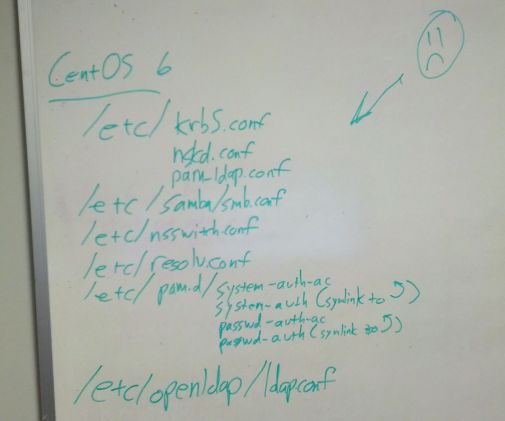 CentOS 6
/etc/ krb5.conf
nslcd.conf
pam_ldap.conf
/etc/samba/smb.conf
/etc/nsswitch.conf
/etc/resolv.conf
/etc/pam.d/system-auth-ac
system-auth (symlink to ⤴)
passwd-auth-ac
passwd-auth (symlink to ⤴)
/etc/openldap/ldap.conf